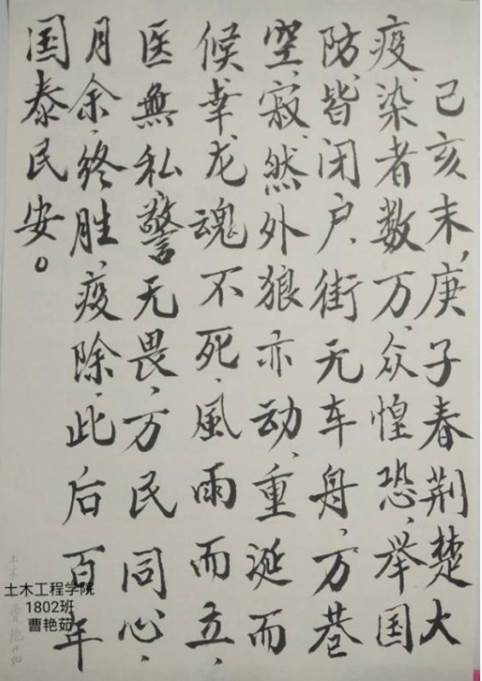 己亥末，庚子春荆楚大
疫，染者数万，众惶恐，举国
防，皆闭户，街无车舟，万巷
空，寂然外狼亦动，重涎而
候，幸，龙魂不死，風雨而立，
医無私警无畏，万民同心，
月余，终胜，疫除，此后百年
国泰民安。
土木工程学院
1802班
曹艳茹